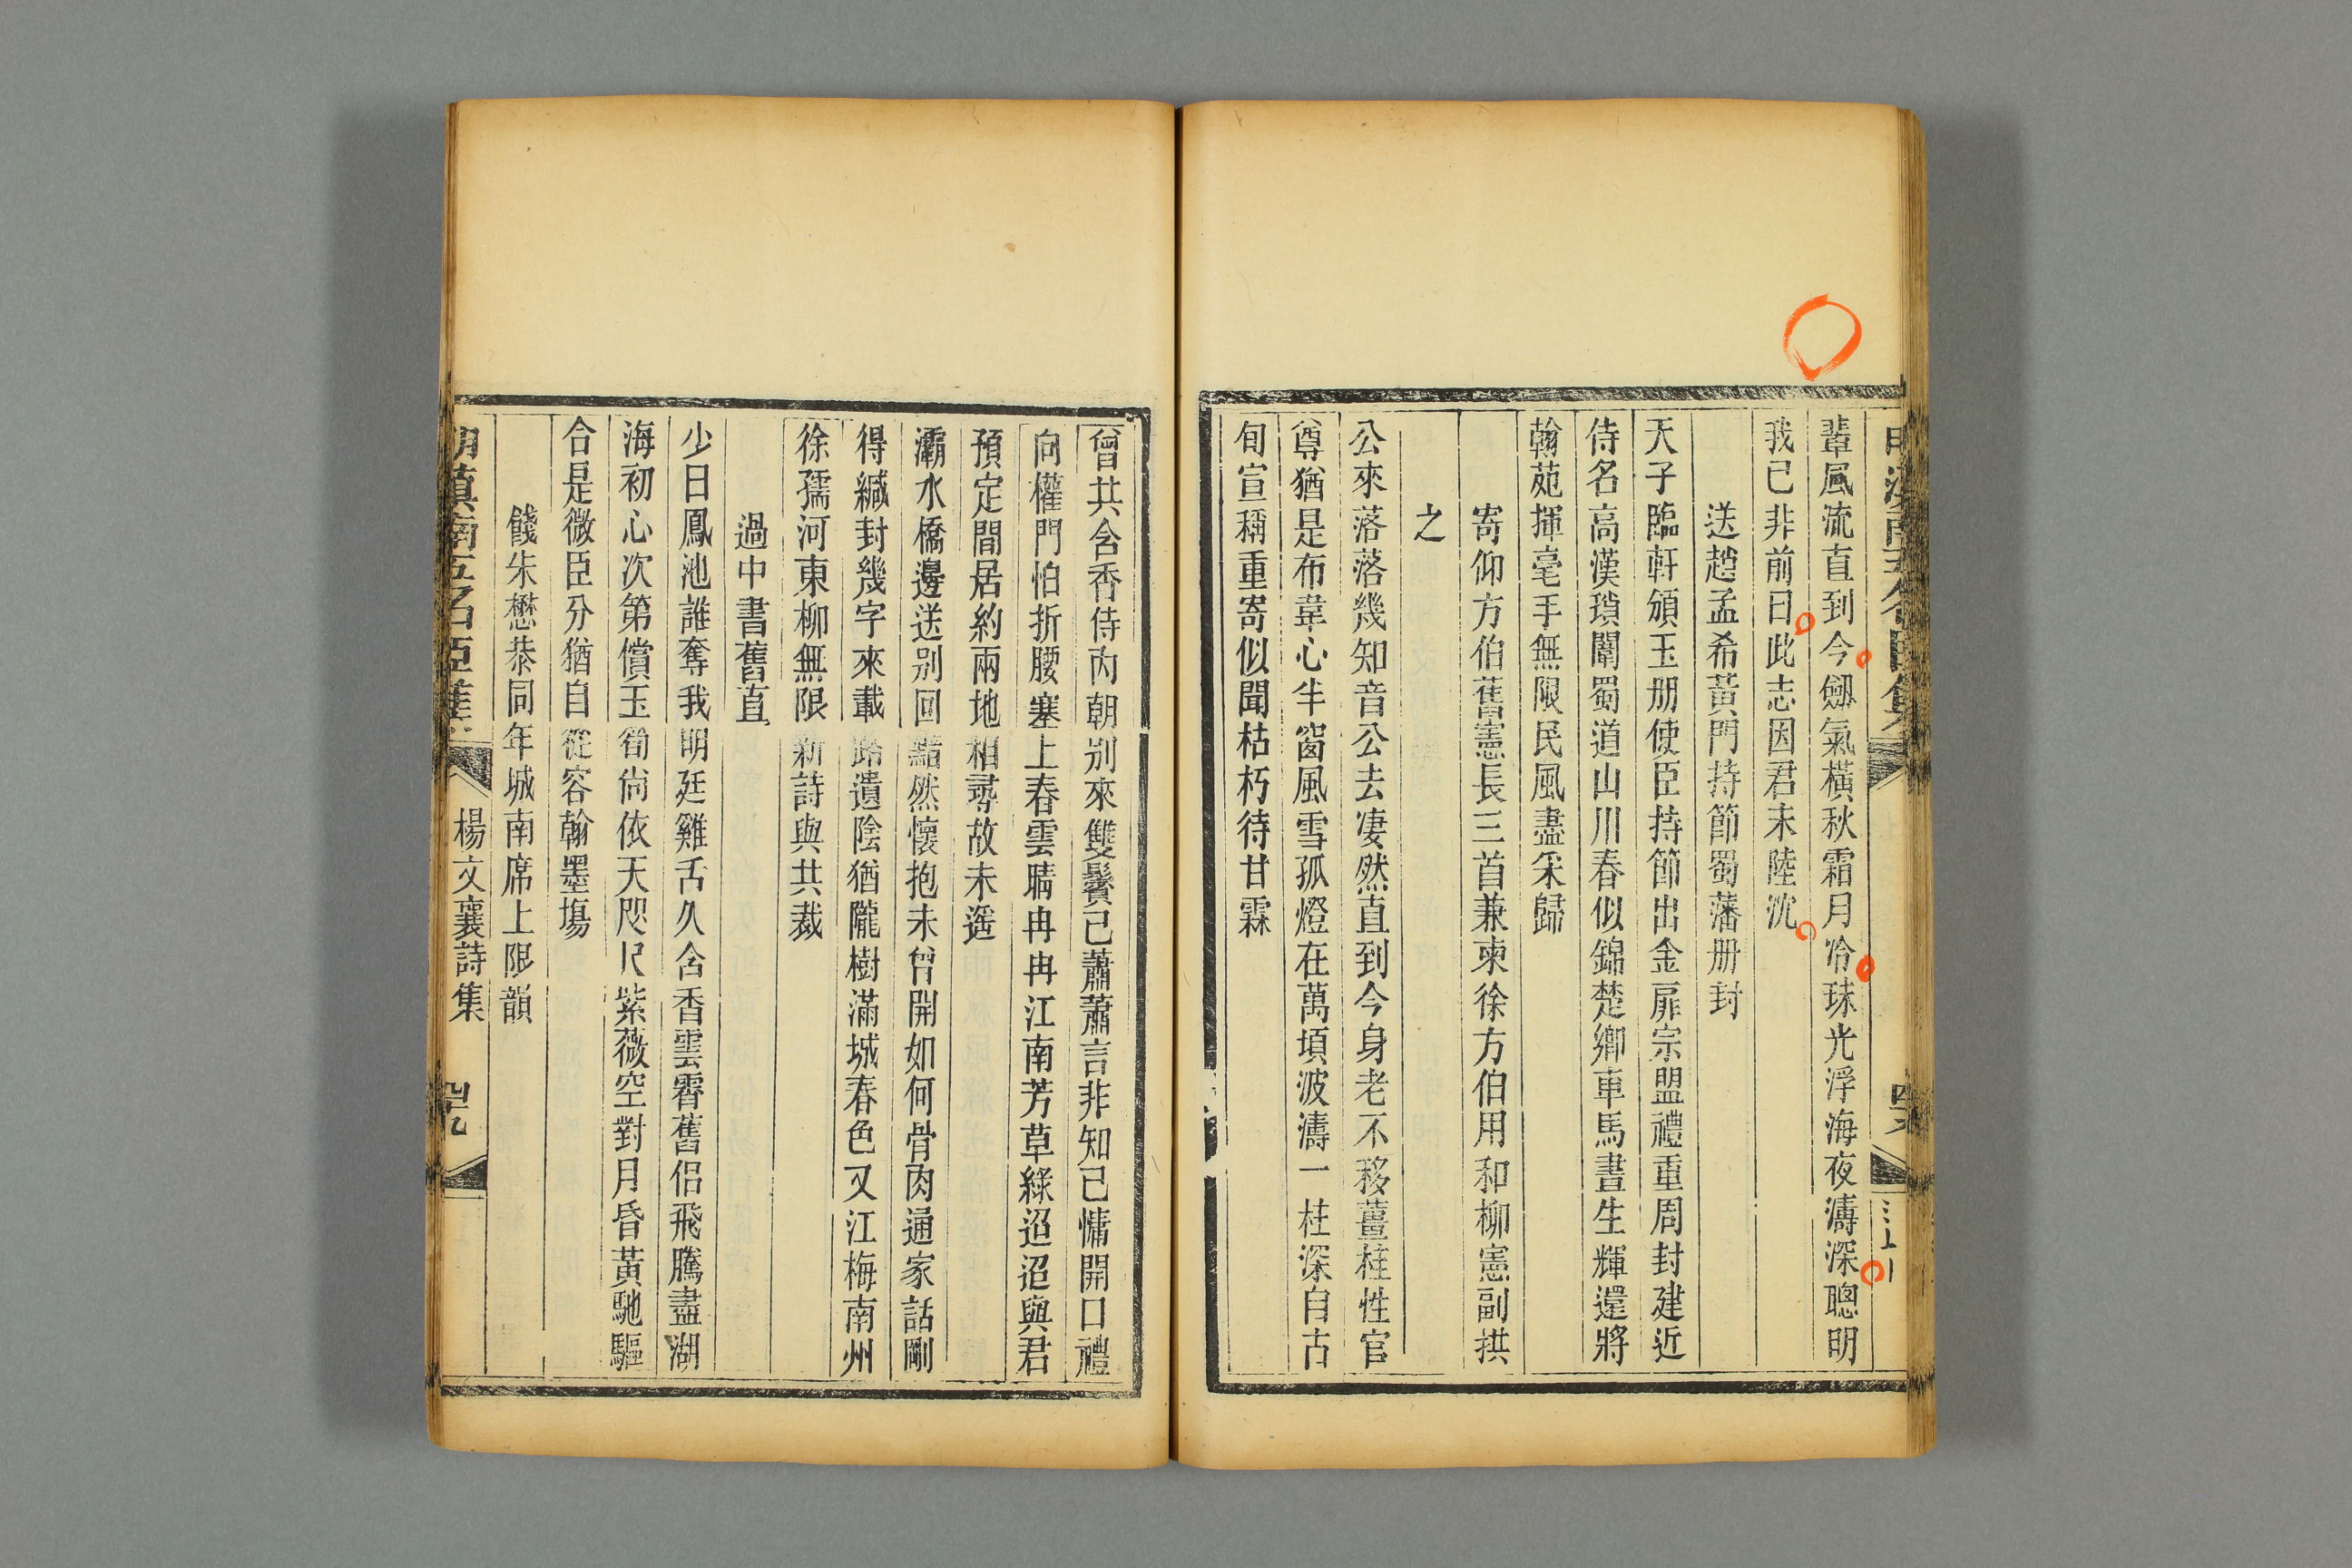 輩風流直到今劔氣橫秋霜月冷珠光浮海夜濤深聰明
我已非前日此志因君未陸沈
送趙孟希黃門持節蜀藩册封
天子臨軒頒玉册使臣持節出金扉宗盟禮重周封建近
侍名高漢瑣闈蜀道山川春似錦楚鄉車馬晝生輝還將
翰苑揮毫手無限民風盡采歸
寄仰方伯舊憲長三首兼柬徐方伯用和柳憲副拱
之
公來落落幾知音公去凄然直到今身老不移薑桂性官
尊猶是布韋心半窗風雪孤燈在萬頃波濤一柱深自古
旬宣稱重寄似聞枯朽待甘霖
曾共含香侍內朝別來雙鬢已蕭蕭言非知己慵開口禮
向權門怕折腰塞上春雲晴冉冉江南芳草綠迢迢與君
預定閒居約兩地相尋故未遙
灞水橋邊送別回黯然懷抱未曾開如何骨肉通家話剛
得緘封幾字來載路遺陰猶隴樹滿城春色又江梅南州
徐孺河東柳無限新詩與共裁
過中書舊直
少日鳳池誰奪我明廷雞舌久含香雲霄舊侶飛騰盡湖
海初心次第償玉筍尚依天咫尺紫薇空對月昏黃馳驅
合是微臣分猶自從容翰墨場
餞朱懋恭同年城南席上限韻
明滇南五名臣集
楊文襄詩集